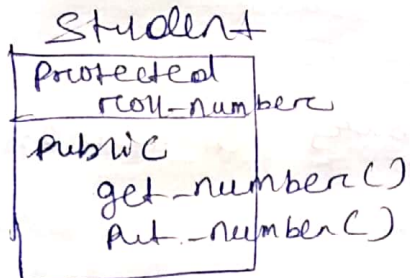 Student
protected
roll-number
public
get-number()
put-number()